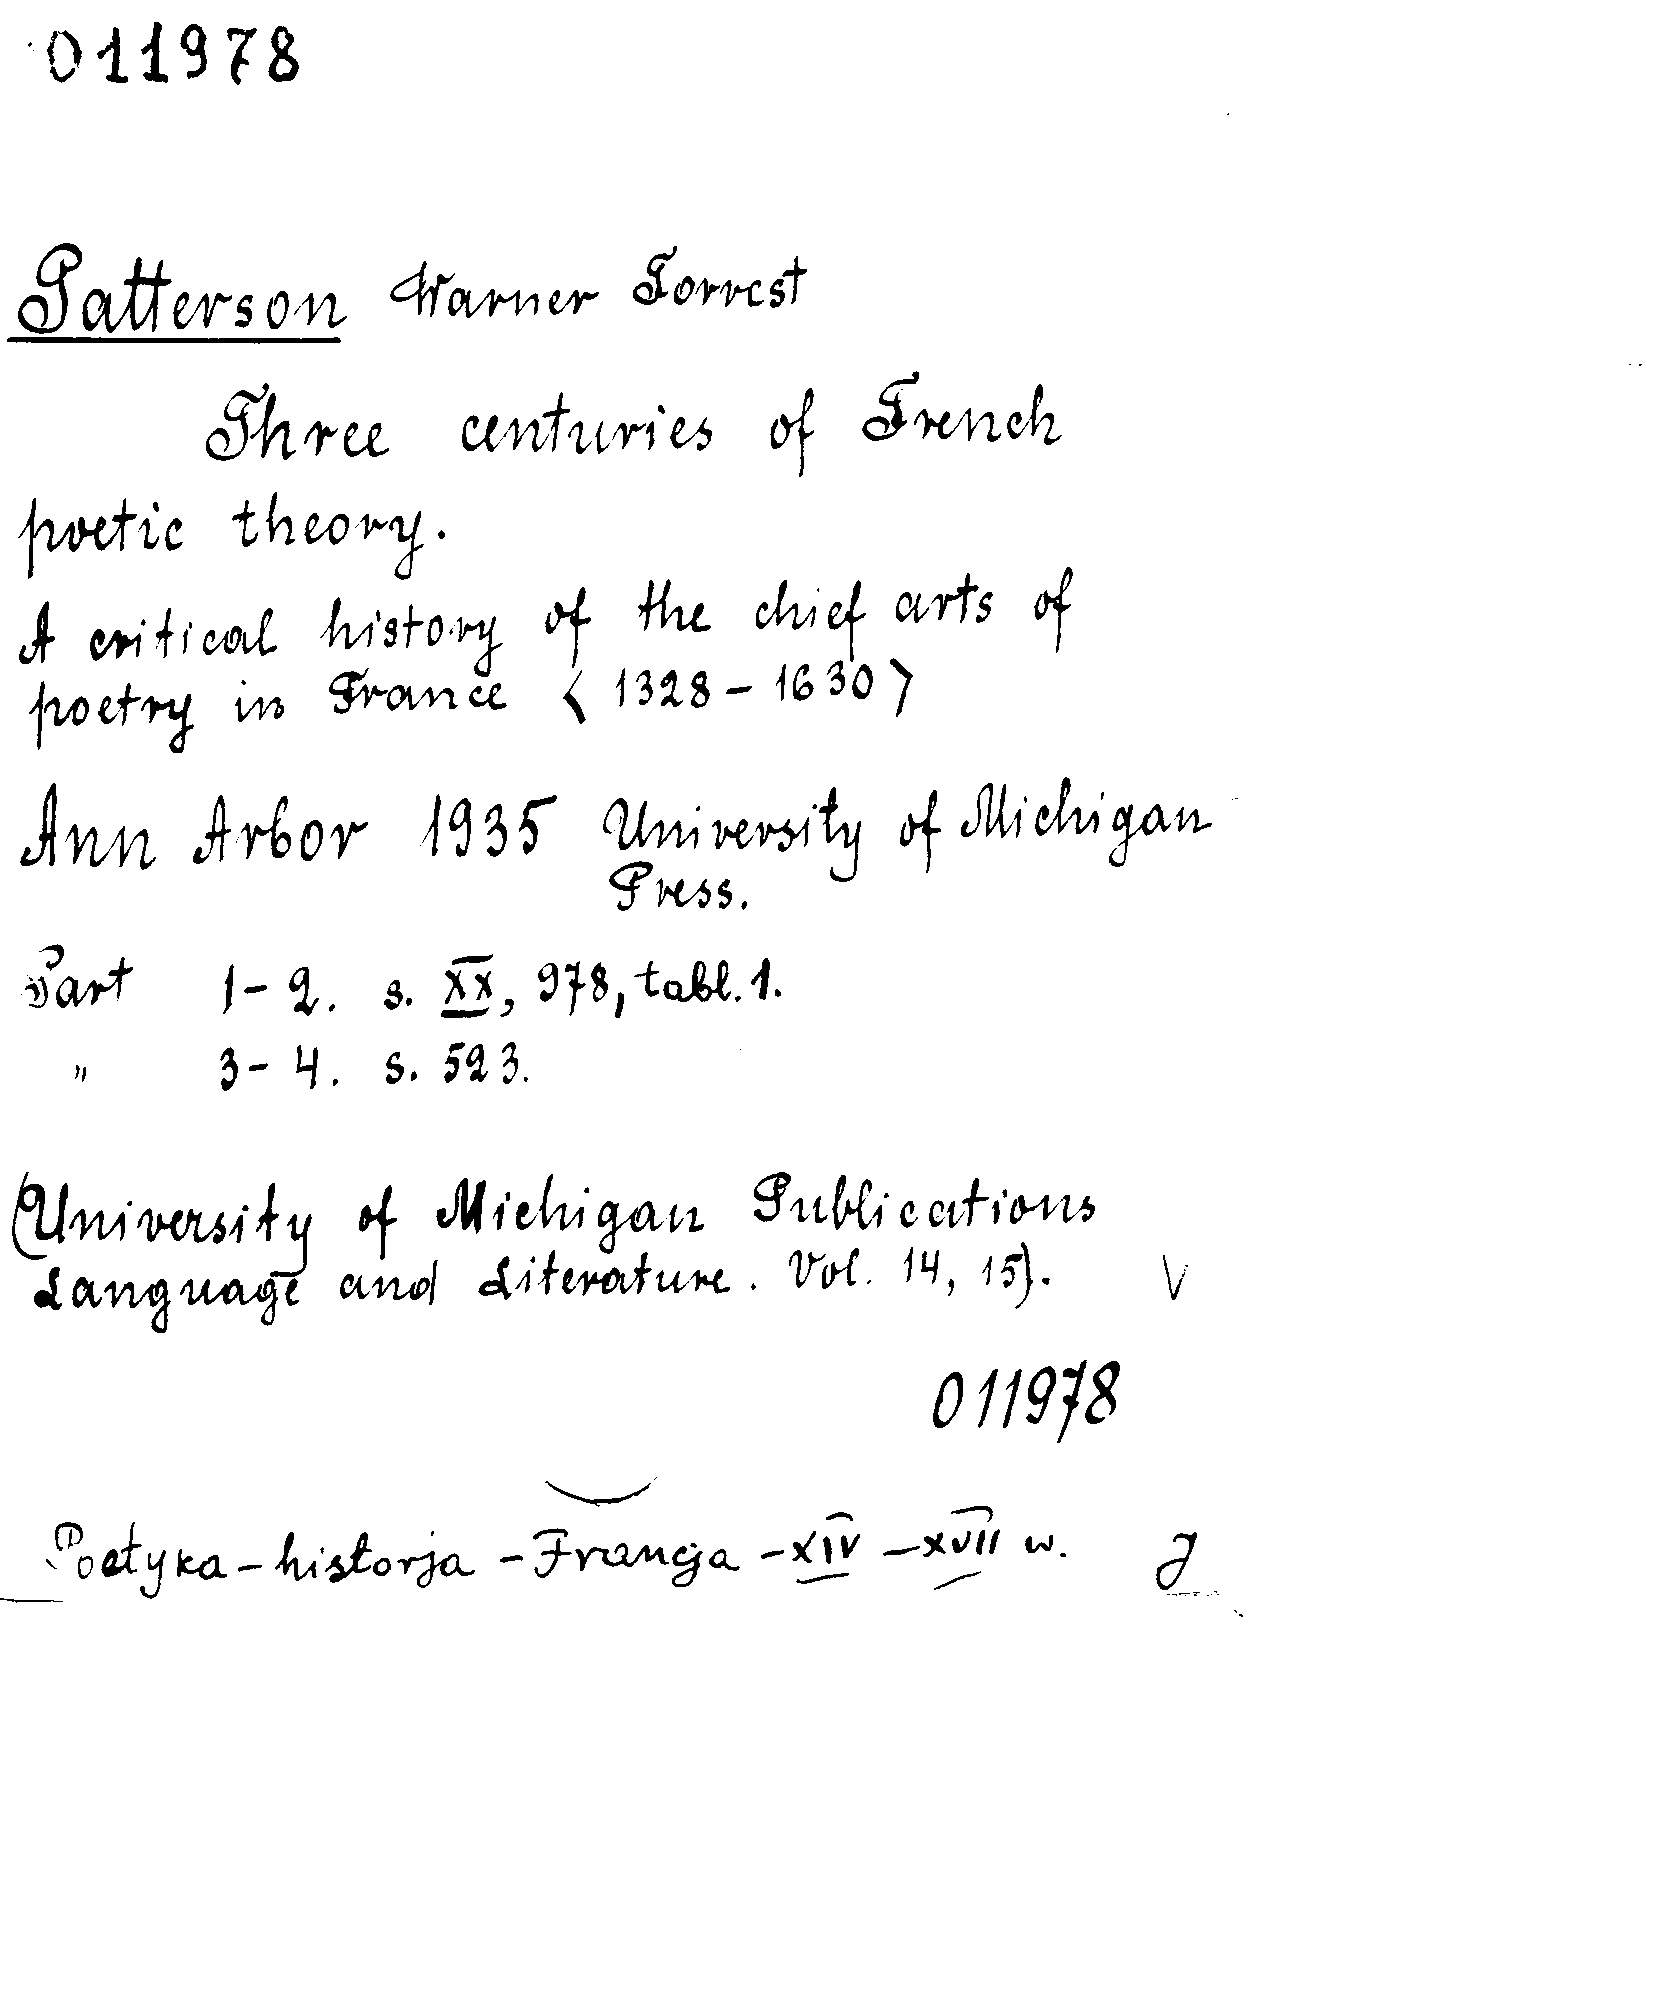 011978
Patterson Warner Forrest
Three centuries of French
poetic theory.
A critical history of the chief arts of
poetry in France < 1328 - 1630 >
Ann Arbor 1935 University of Michigan
Press.
Part 1-2. s. XX, 978, tabl. 1.
" 3-4. s. 523.
(University of Michigan Publications
Language and Literature. Vol. 14, 15). V
011978
Poetyka - historja - Francja - XIV - XVII w. J